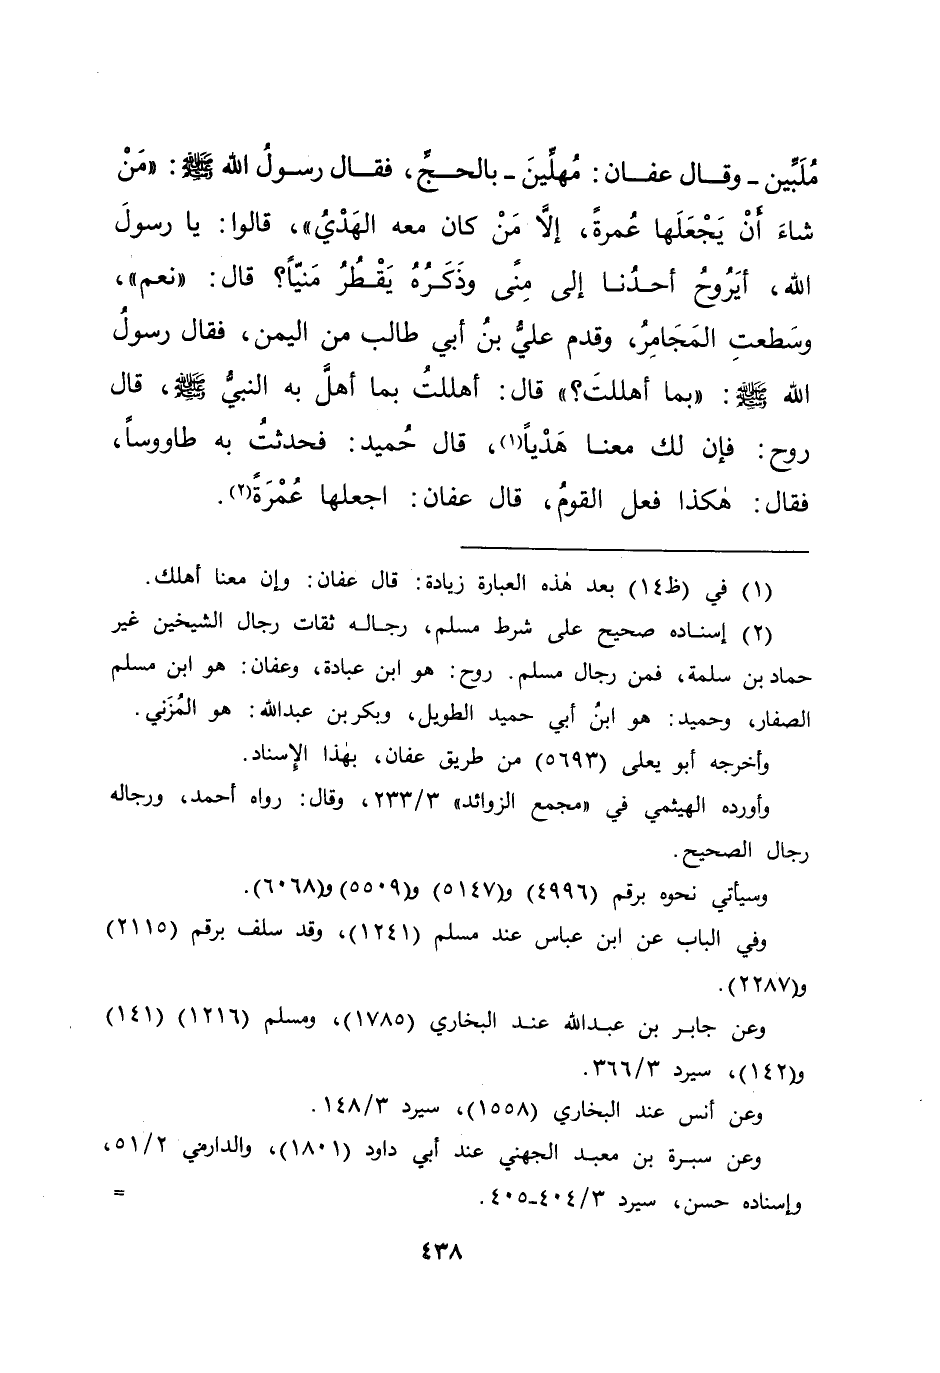 مُلَبِّين ـ وقـال عفـان: مُهلِّينَ ـ بالحـجِّ، فقـال رسـولُ الله ﷺ: «مَنْ
شاءَ أَنْ يَجْعَلَها عُمرةً، إلَّا مَنْ كان معه الهَدْيُ»، قالوا: يا رسولَ
الله، أيَرُوحُ أحـدُنـا إلى مِنًى وذَكَـرُهُ يَقْـطُرُ مَنيّاً؟ قال: «نعم»،
وسَطعتِ المَجَامِرُ، وقدم عليُّ بنُ أبي طالب من اليمن، فقال رسولُ
الله ﷺ: «بما أهللتَ؟» قال: أهللتُ بما أهلَّ به النبيُّ ﷺ، قال
روح: فإن لك معنـا هَدْياً(١)، قال حُميد: فحدثتُ به طاووساً،
فقال: هٰكذا فعل القومُ، قال عفان: اجعلها عُمْرَةً(٢).
(١) في (ظ١٤) بعد هٰذه العبارة زيادة: قال عفان: وإن معنا أهلك.
(٢) إسناده صحيح على شرط مسلم، رجـالـه ثقات رجال الشيخين غير
حماد بن سلمة، فمن رجال مسلم. روح: هو ابن عبادة، وعفان: هو ابن مسلم
الصفار، وحميد: هو ابنُ أبي حميد الطويل، وبكر بن عبدالله: هو المُزَني.
وأخرجه أبو يعلى (٥٦٩٣) من طريق عفان، بهٰذا الإسناد.
وأورده الهيثمي في «مجمع الزوائد» ٢٣٣/٣، وقال: رواه أحمد، ورجاله
رجال الصحيح.
وسيأتي نحوه برقم (٤٩٩٦) و(٥١٤٧) و(٥٥٠٩) و(٦٠٦٨).
وفي الباب عن ابن عباس عند مسلم (١٢٤١)، وقد سلف برقم (٢١١٥)
و(٢٢٨٧).
وعن جابـر بن عبـدالله عنـد البخاري (١٧٨٥)، ومسلم (١٢١٦) (١٤١)
و(١٤٢)، سيرد ٣٦٦/٣.
وعن أنس عند البخاري (١٥٥٨)، سيرد ١٤٨/٣.
وعن سبـرة بن معبـد الجهني عند أبي داود (١٨٠١)، والدارمي ٥١/٢،
وإسناده حسن، سيرد ٤٠٤/٣ـ٤٠٥. =
٤٣٨